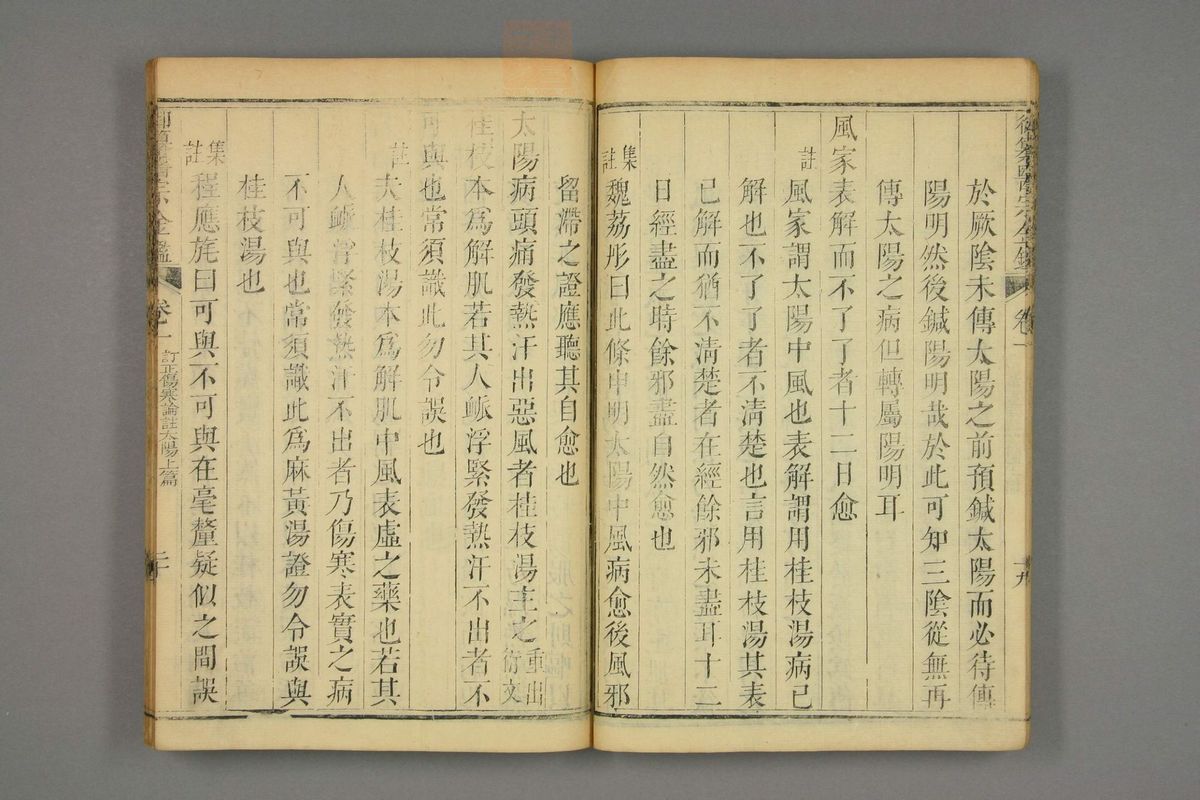 御纂醫宗金鑑 卷一 十九
於厥陰未傳太陽之前預鍼太陽而必待傳
陽明然後鍼陽明哉於此可知三陰從無再
傳太陽之病但轉屬陽明耳
風家表解而不了了者十二日愈
註 風家謂太陽中風也表解謂用桂枝湯病已
解也不了了者不清楚也言用桂枝湯其表
已解而猶不清楚者在經餘邪未盡耳十二
日經盡之時餘邪盡自然愈也
集註 魏荔彤曰此條申明太陽中風病愈後風邪
留滯之證應聽其自愈也
太陽病頭痛發熱汗出惡風者桂枝湯主之 重出衍文
桂枝本為解肌若其人脈浮緊發熱汗不出者不
可與也常須識此勿令誤也
註 夫桂枝湯本為解肌中風表虛之藥也若其
人脈浮緊發熱汗不出者乃傷寒表實之病
不可與也常須識此為麻黃湯證勿令誤與
桂枝湯也
集註 程應旄曰可與不可與在毫釐疑似之間誤
御纂醫宗金鑑 卷一 訂正傷寒論註太陽上篇 二十